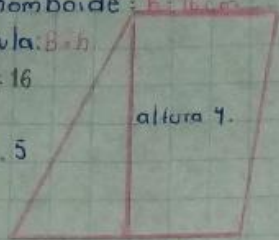 omboide:
ula: B·h
16
altura 4.
. 5